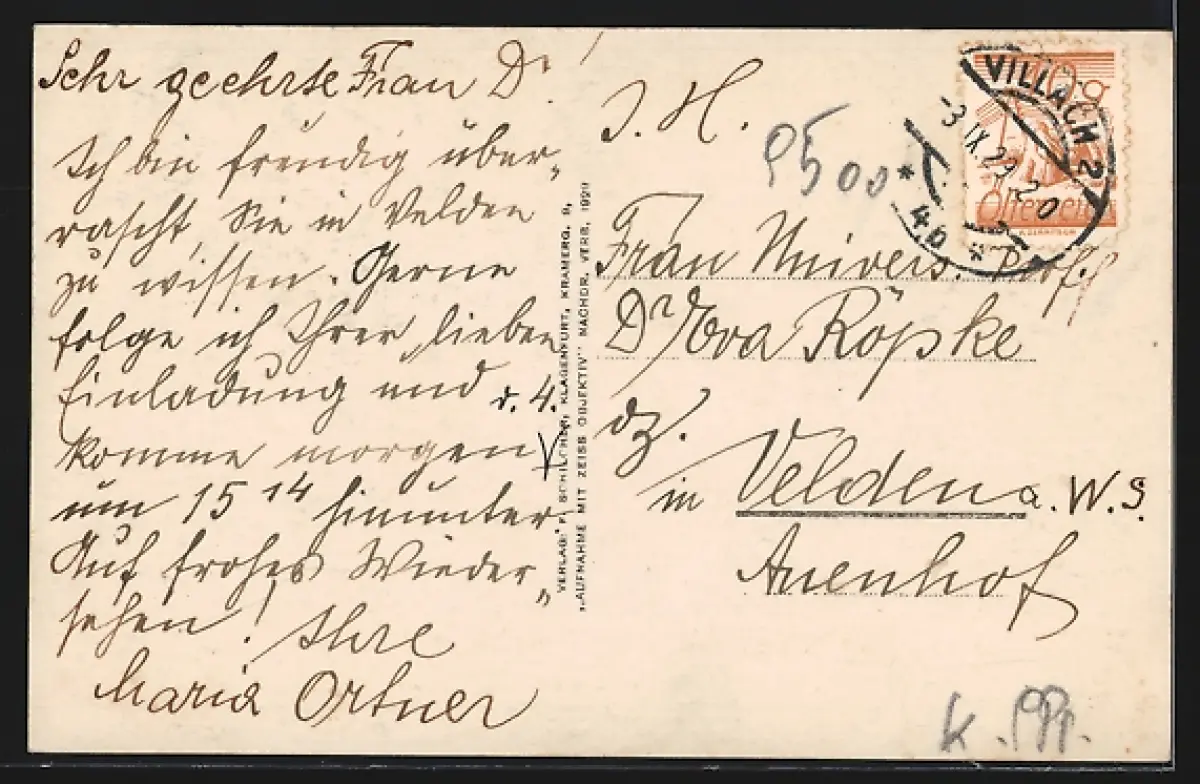 Sehr geehrte Frau Dr!
Ich bin freudig über-
rascht, Sie in Velden
zu wissen. Gerne
folge ich Ihrer lieben
Einladung und
komme morgen d. 4.
um 15 14 hinunter
Auf frohes Wieder-
sehen! Ihre
Maria Ortner
VERLAG: F. SCHILCHER, KLAGENFURT, KRAMERG. 8,
„AUFNAHME MIT ZEISS OBJEKTIV" NACHDR. VERB. 1929
I. H.
9500
VILLACH 2
-3.IX.29
* 4b *
Österreich
Frau Univers. Prof.
Dr Eva Röpke
dz.
in Velden a. W. S.
Auenhof